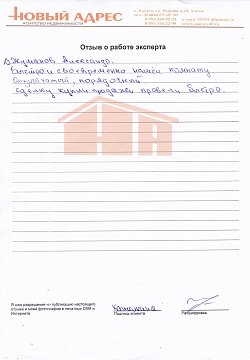 НОВЫЙ АДРЕС
агентство недвижимости
Отзыв о работе эксперта
Джумаков Александр.
Быстро и своевременно нашёл комнату
отзывчатый, порядочный
сделку купли продажи провели быстро.
Я даю разрешение на публикацию настоящего
отзыва и моей фотографии в печатных СМИ и
Интернете
Подпись клиента
Расшифровка